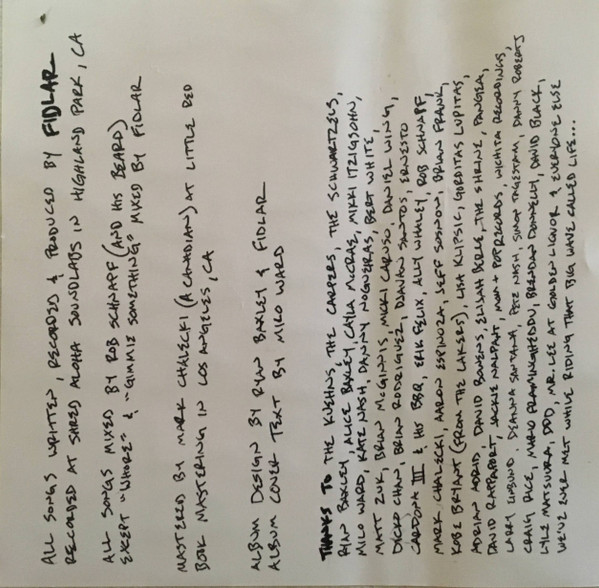 ALL SONGS WRITTEN, RECORDED & PRODUCED BY FIDLAR
RECORDED AT SHRED ALOHA SOUNDLABS IN HIGHLAND PARK, CA
ALL SONGS MIXED BY ROB SCHNAPF (AND HIS BEARD)
EXCEPT "WHORE" & "GIMMIE SOMETHING" MIXED BY FIDLAR
MASTERED BY MARK CHALECKI (A CANADIAN) AT LITTLE RED
BOOK MASTERING IN LOS ANGELES, CA
ALBUM DESIGN BY RYAN BAXLEY & FIDLAR
ALBUM COVER TEXT BY MILO WARD
THANKS TO THE KUEHNS, THE CARPERS, THE SCHWARTZELS,
RYAN BAXLEY, ALICE BAXLEY, CAYLA MCCRAE, MIKKI ITZIGSOHN,
MILO WARD, KATE NASH, DANNY NOGUEIRAS, BERT WHITE,
MATT ZUK, BRIAN MCGINNIS, MICKI CARUSO, DANIEL WING,
DICKO CHAN, BRIAN RODRIGUEZ, DAVIAN SANTOS, ERNESTO
CARDONA III & HIS BBQ, ERIK FELIX, ALLY WHALEY, ROB SCHNAPF,
MARK CHALECKI, AARON ESPINOZA, JEFF SOSNOW, BRIAN FRANK,
KOBE BRYANT (FROM THE LAKERS), LISA KLIPSIC, GORDITAS LUPITAS,
ADRIAN ADRID, DAVID BOWENS, ELIJAH BERLE, THE SHRINE, PANGEA,
DAVID RAPPAPORT, JACKIE NALPANT, MOM + POP RECORDS, WICHITA RECORDINGS,
LARRY DEANNA SANTANA, PETE NASH, TAGESTAM, DANNY ROBERTS
CRAIG RICE, MARIO FRAMINGHEDDU, BRENDAN DONNELLY, DAVID BLACK,
KYLE MATSUURA, DOD, MR. LEE AT GOLDEN LIQUOR & EVERYONE ELSE
WE'VE EVER MET WHILE RIDING THAT BIG WAVE CALLED LIFE...